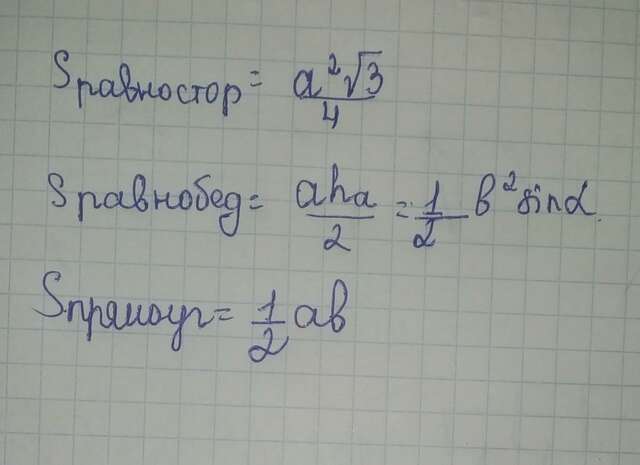 Sравностор = a²√3/4
Sравнобед = aha/2 = 1/2 b²sinα.
Sпрямоуг = 1/2 ab